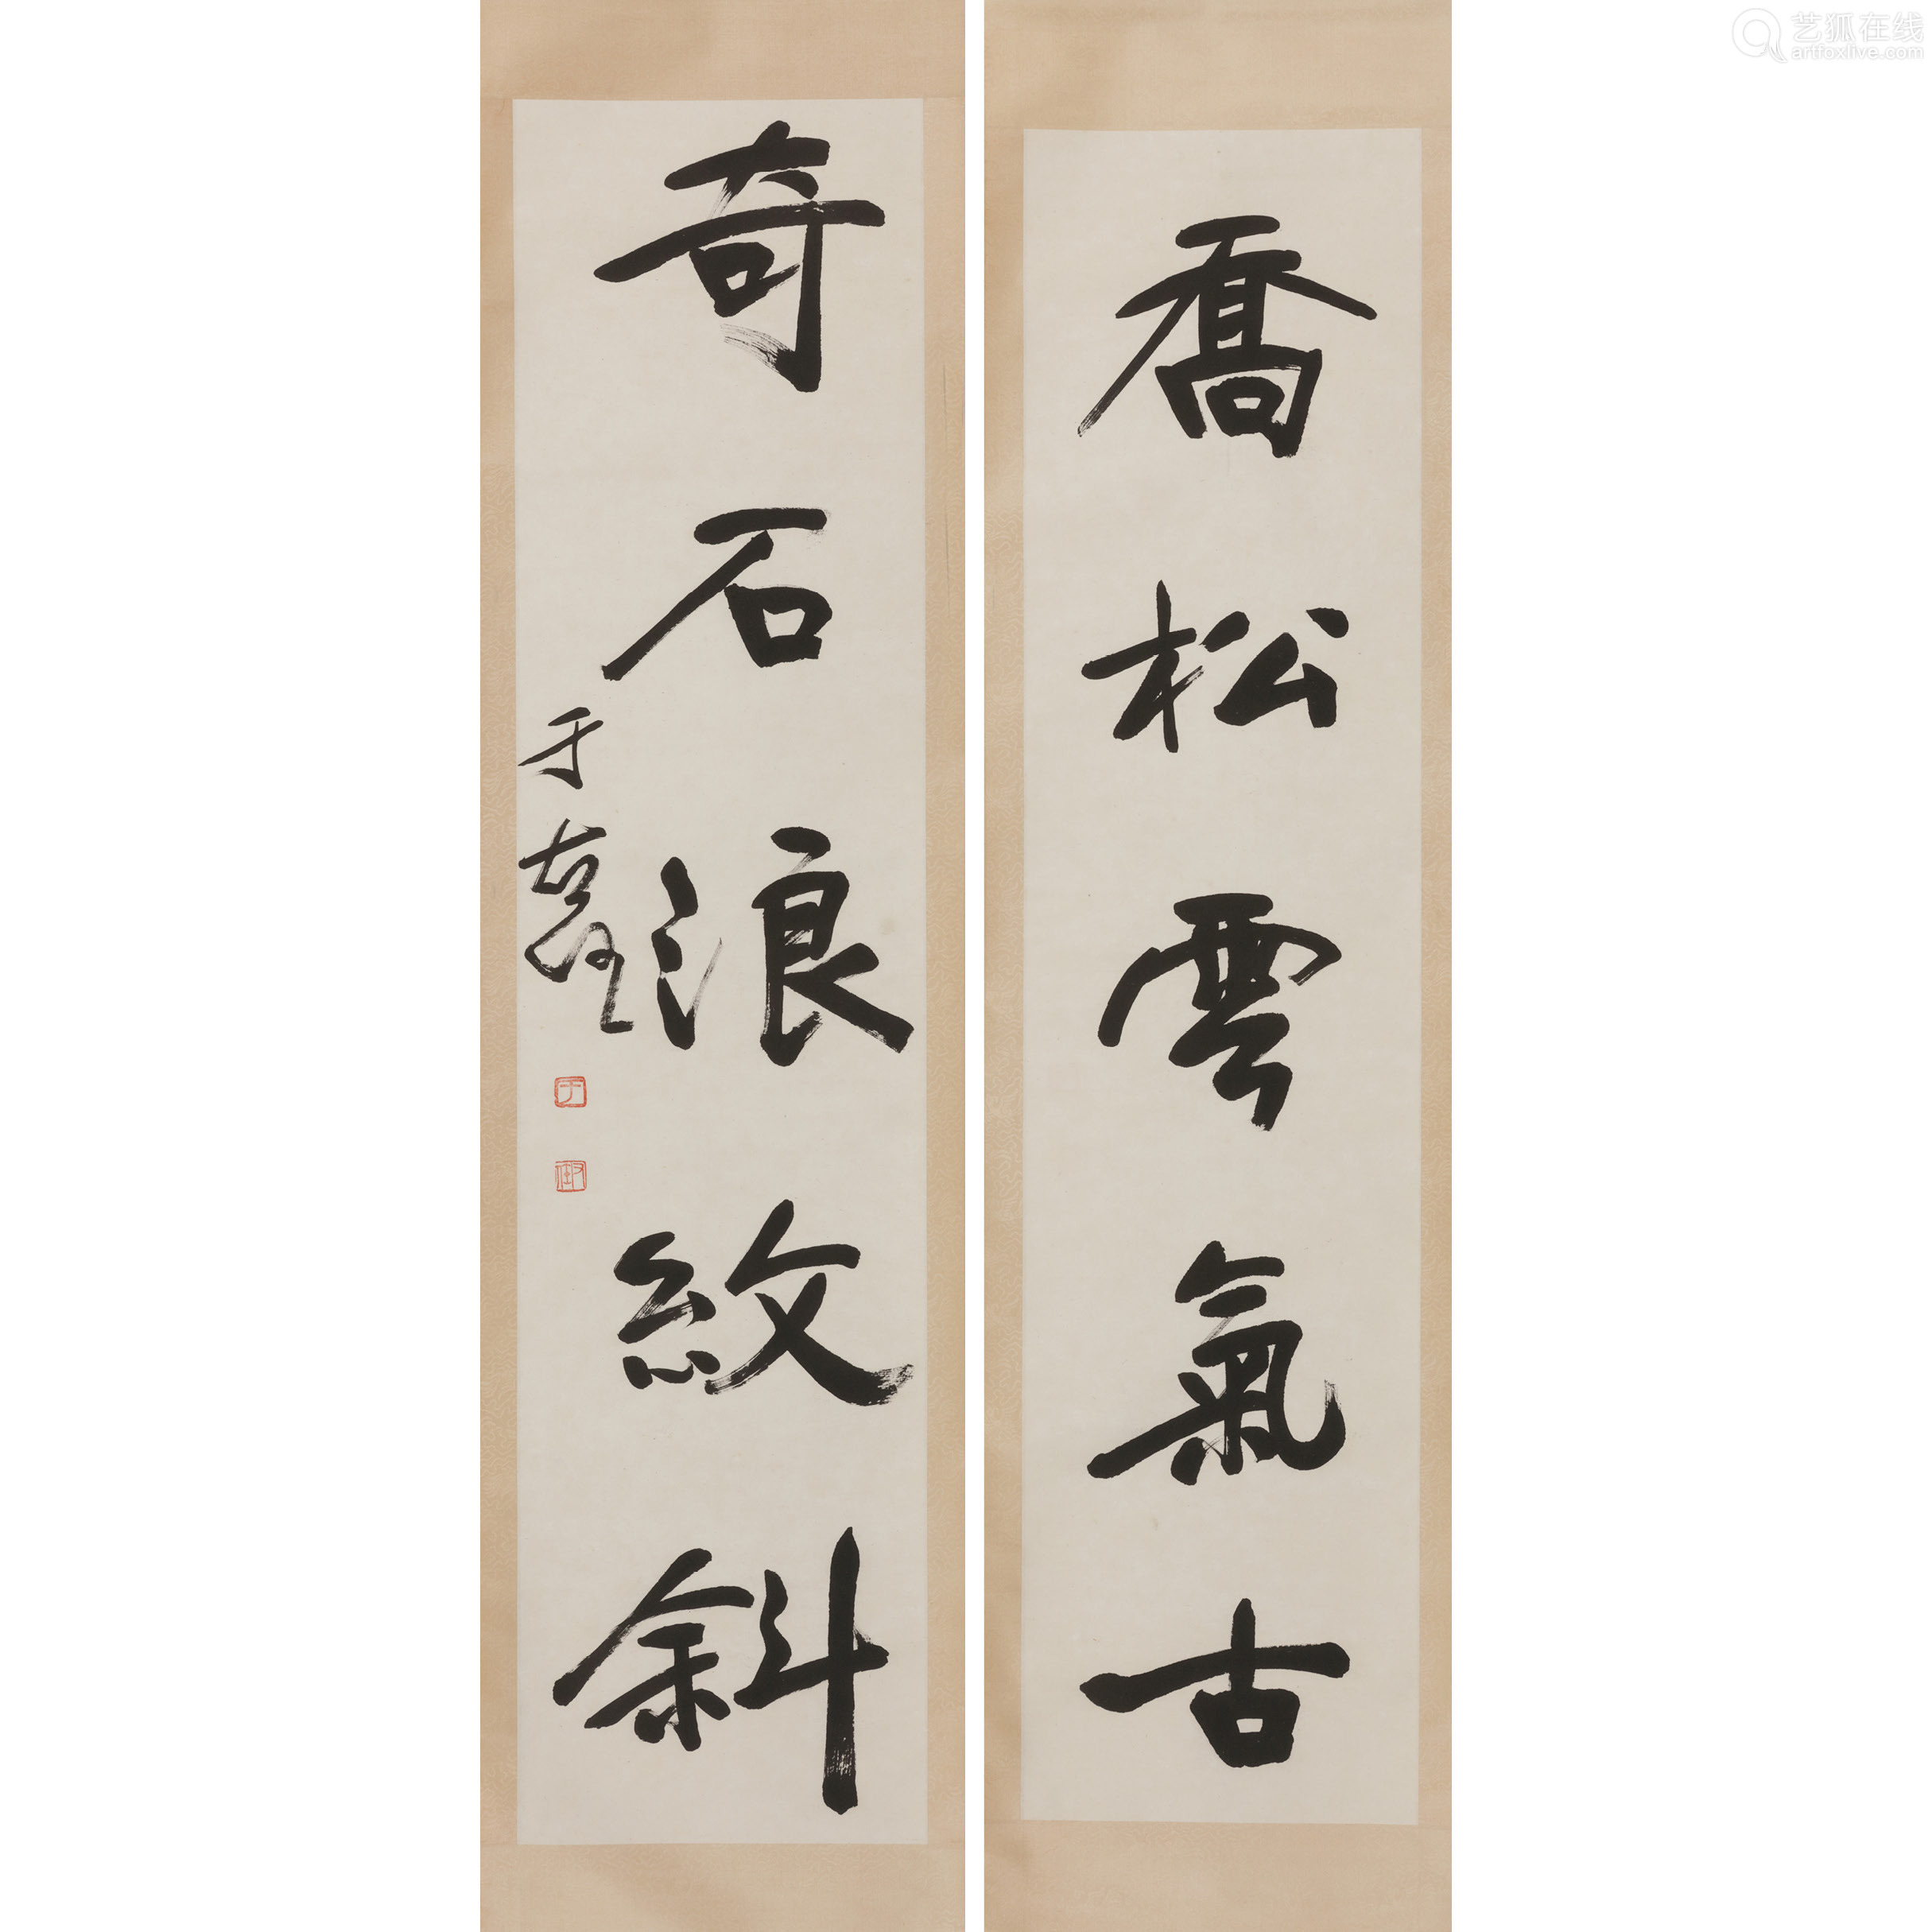 喬松雲氣古
奇石浪紋斜
于
于
艺狐在线
artfoxlive.com